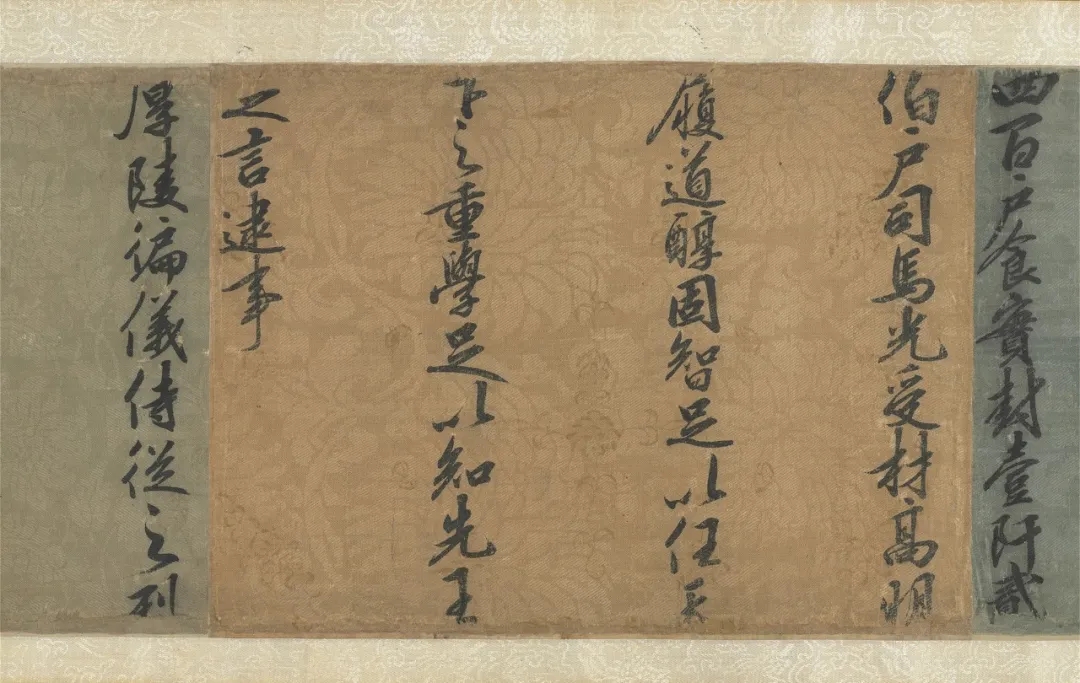 四百户食實封壹阡貳
伯户司馬光受材高明
履道醇固智足以任天
下之重學足以知先王
之言逮事
厚陵徧儀侍從之列